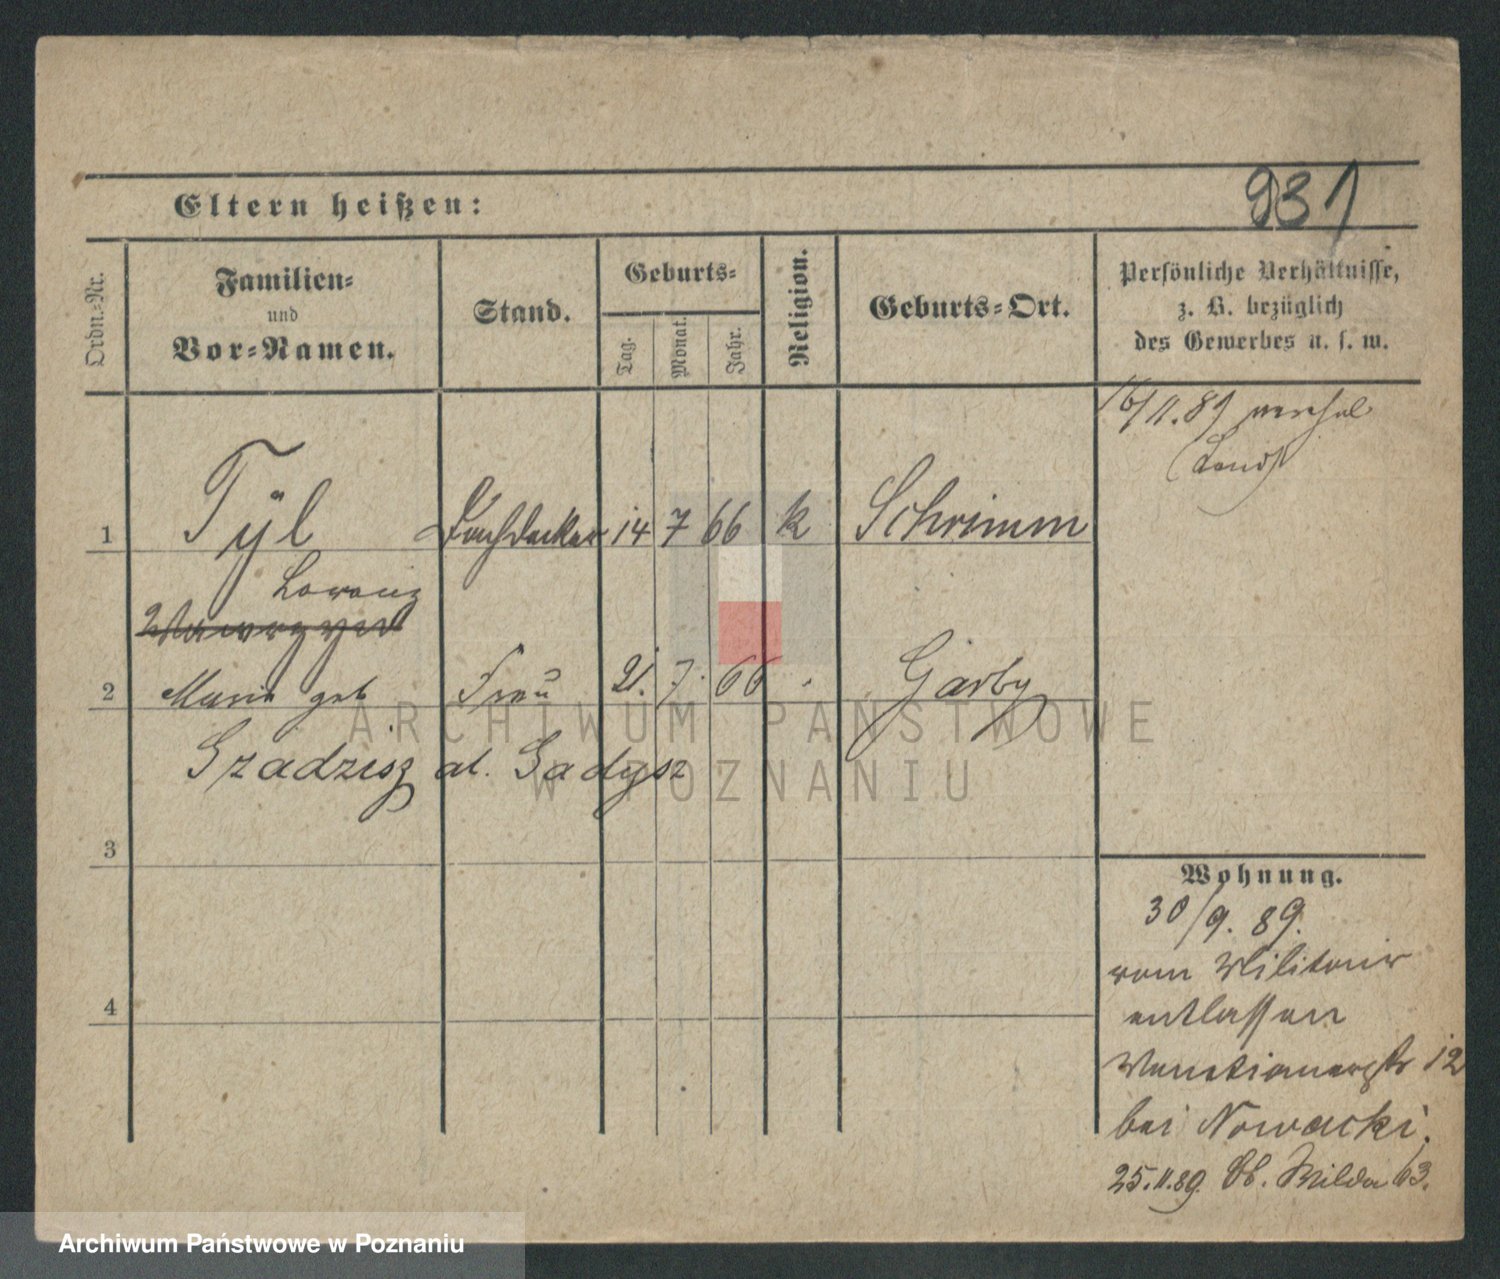 931
Eltern heißen:
Ordn.-Nr.
Familien-
und
Vor-Namen.
Stand.
Geburts-
Tag.
Monat.
Jahr.
Religion.
Geburts-Ort.
Persönliche Verhältnisse,
z. B. bezüglich
des Gewerbes u. s. w.
16/11.89
1 Tÿl Dachdecker 14 7 66 k Schrimm
Lorenz
Wawrzyn
2 Marie geb Frau 21. 7. 66 Garby
Szadzisz al. Gadysz
3
4
Wohnung.
30/9. 89.
vom Militair
entlassen
Venetianerstr 12
bei Nowacki.
25.11.89. Ob. Wilda 63.
ARCHIWUM PAŃSTWOWE
W POZNANIU
Archiwum Państwowe w Poznaniu